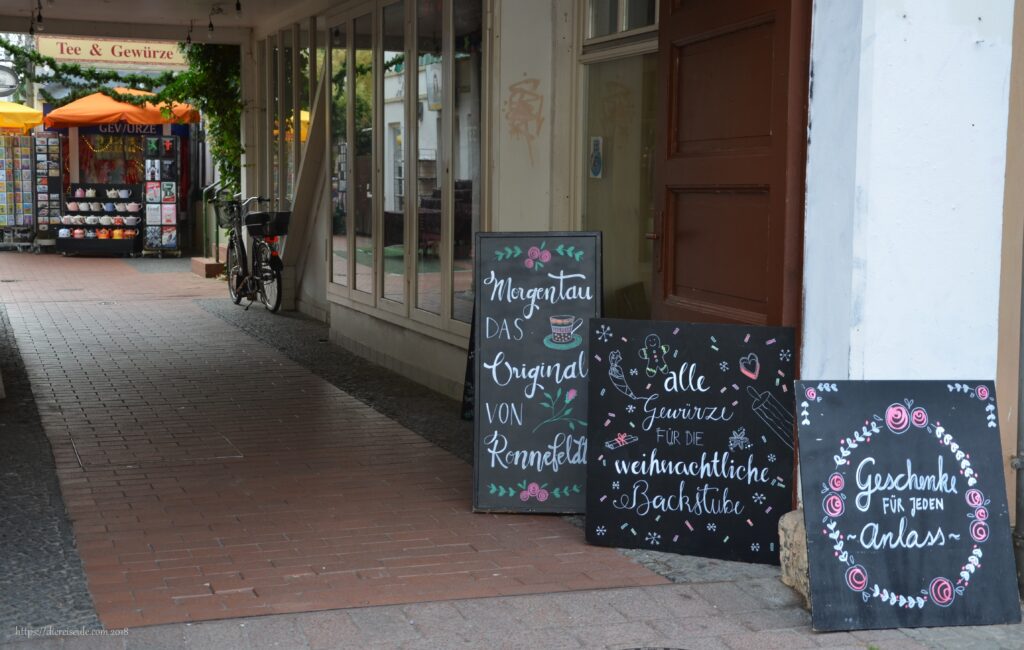 Tee & Gewürze
GEWÜRZE
Morgentau
DAS
Original
VON
Ronnefeldt
alle
Gewürze
FÜR DIE
weihnachtliche
Backstube
Geschenke
FÜR JEDEN
~Anlass~
https://diereiseule.com 2018